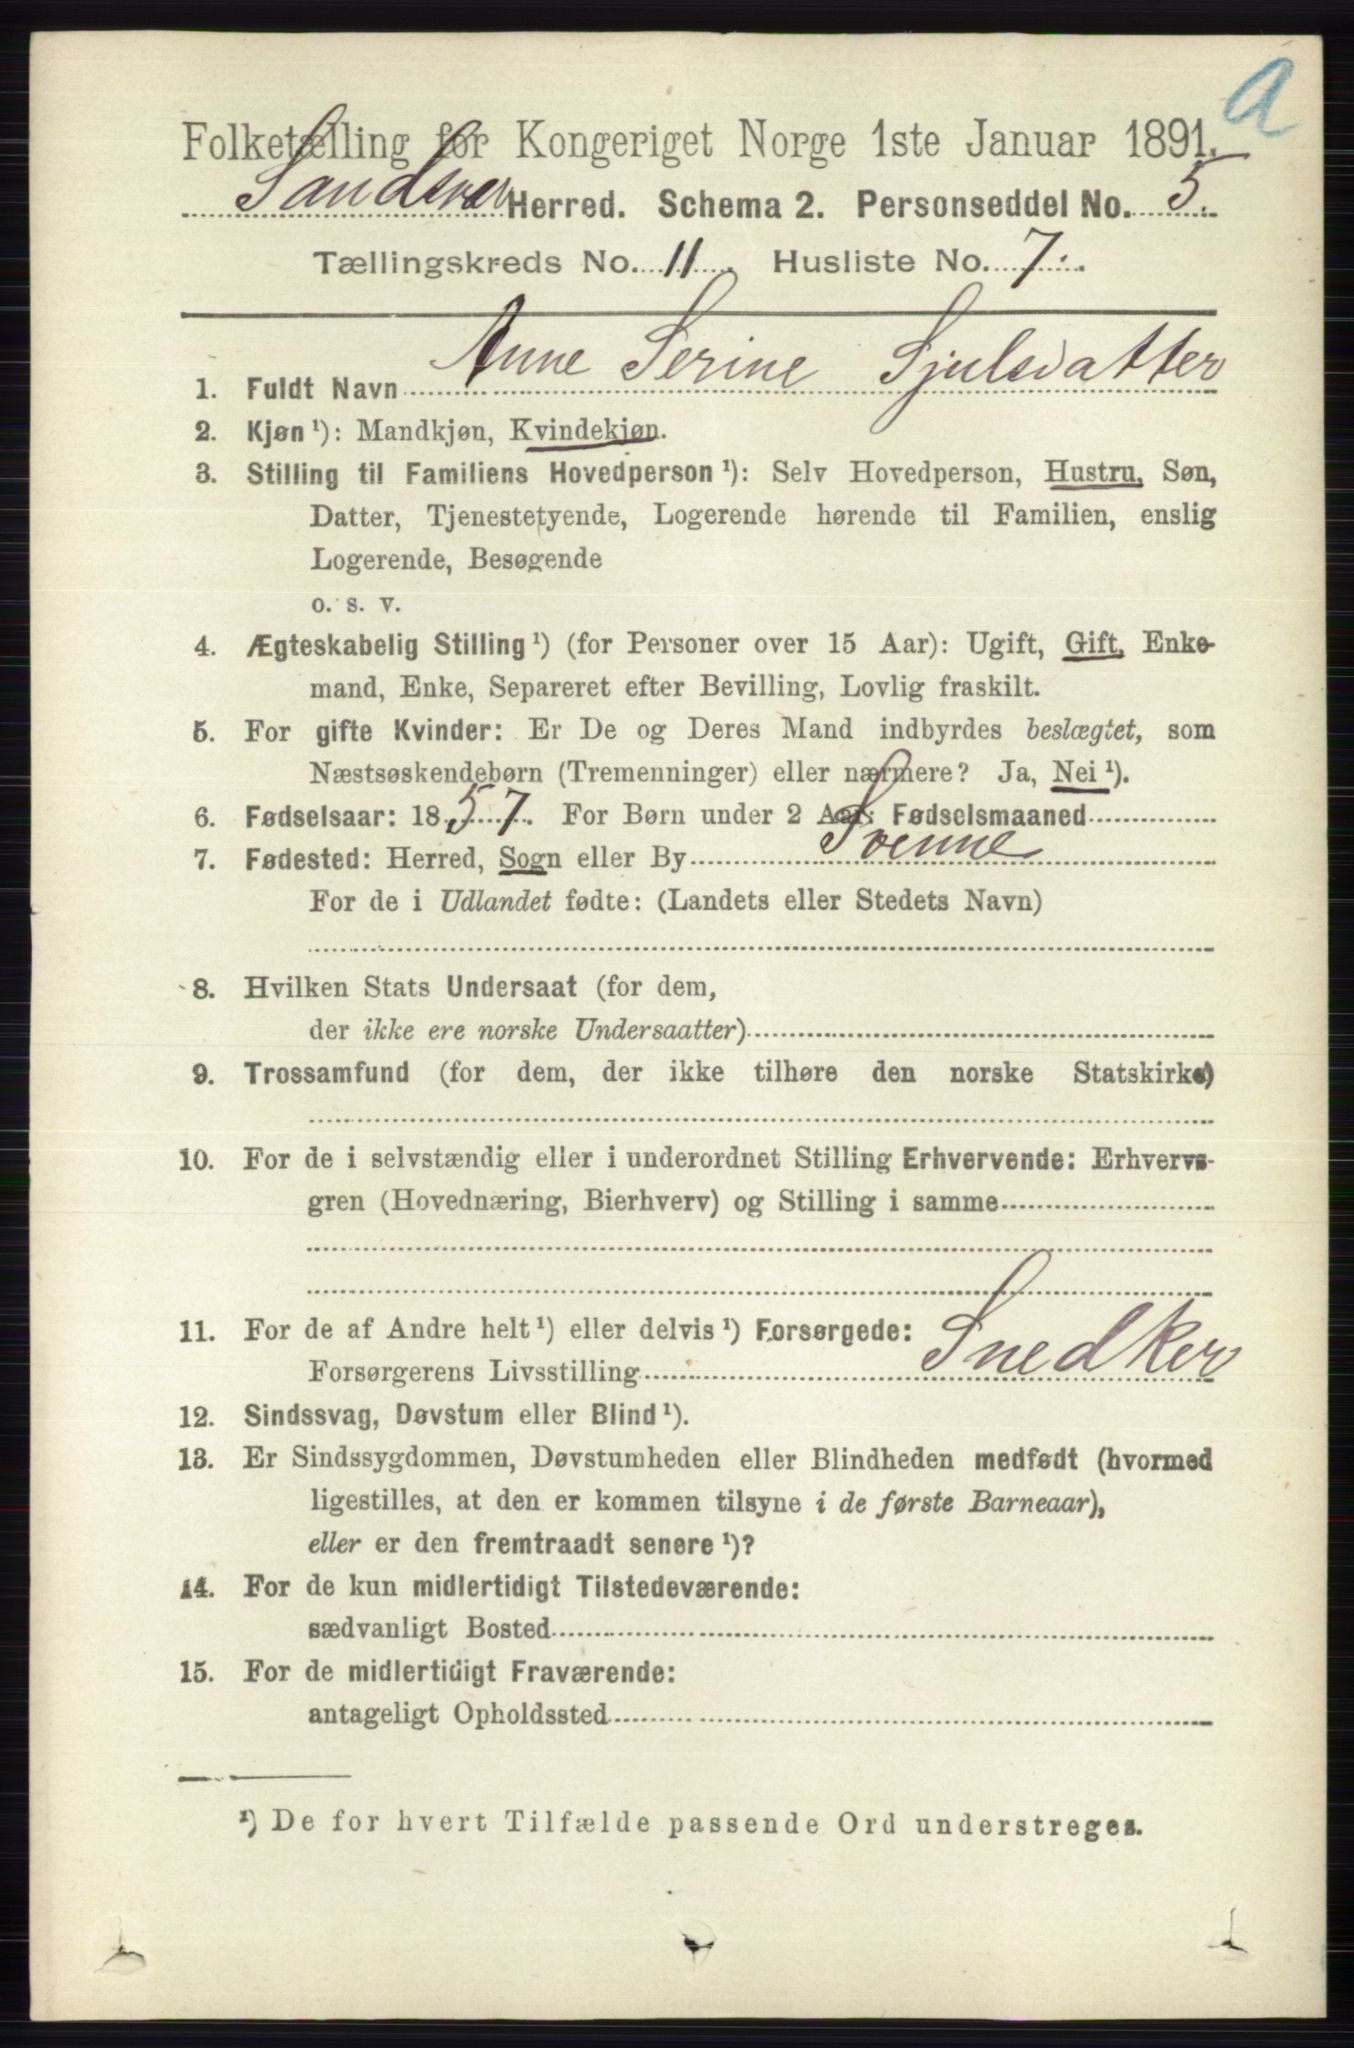 a
Folketælling for Kongeriget Norge 1ste Januar 1891.
Sandsvær Herred. Schema 2. Personseddel No. 5.
Tællingskreds No. 11. Husliste No. 7.
1. Fuldt Navn Anne Serine Sjulsdatter
2. Kjøn ¹): Mandkjøn, Kvindekjøn.
3. Stilling til Familiens Hovedperson ¹): Selv Hovedperson, Hustru, Søn,
Datter, Tjenestetyende, Logerende hørende til Familien, enslig
Logerende, Besøgende
o. s. v.
4. Ægteskabelig Stilling ¹) (for Personer over 15 Aar): Ugift, Gift, Enke-
mand, Enke, Separeret efter Bevilling, Lovlig fraskilt.
5. For gifte Kvinder: Er De og Deres Mand indbyrdes beslægtet, som
Næstsøskendebørn (Tremenninger) eller nærmere? Ja, Nei ¹).
6. Fødselsaar: 1857. For Børn under 2 Aar: Fødselsmaaned
7. Fødested: Herred, Sogn eller By Svenne
For de i Udlandet fødte: (Landets eller Stedets Navn)
8. Hvilken Stats Undersaat (for dem,
der ikke ere norske Undersaatter)
9. Trossamfund (for dem, der ikke tilhøre den norske Statskirke)
10. For de i selvstændig eller i underordnet Stilling Erhvervende: Erhvervs-
gren (Hovednæring, Bierhverv) og Stilling i samme
11. For de af Andre helt ¹) eller delvis ¹) Forsørgede:
Forsørgerens Livsstilling Snedker
12. Sindssvag, Døvstum eller Blind ¹).
13. Er Sindssygdommen, Døvstumheden eller Blindheden medfødt (hvormed
ligestilles, at den er kommen tilsyne i de første Barneaar),
eller er den fremtraadt senere ¹)?
14. For de kun midlertidigt Tilstedeværende:
sædvanligt Bosted
15. For de midlertidigt Fraværende:
antageligt Opholdssted
¹) De for hvert Tilfælde passende Ord understreges.